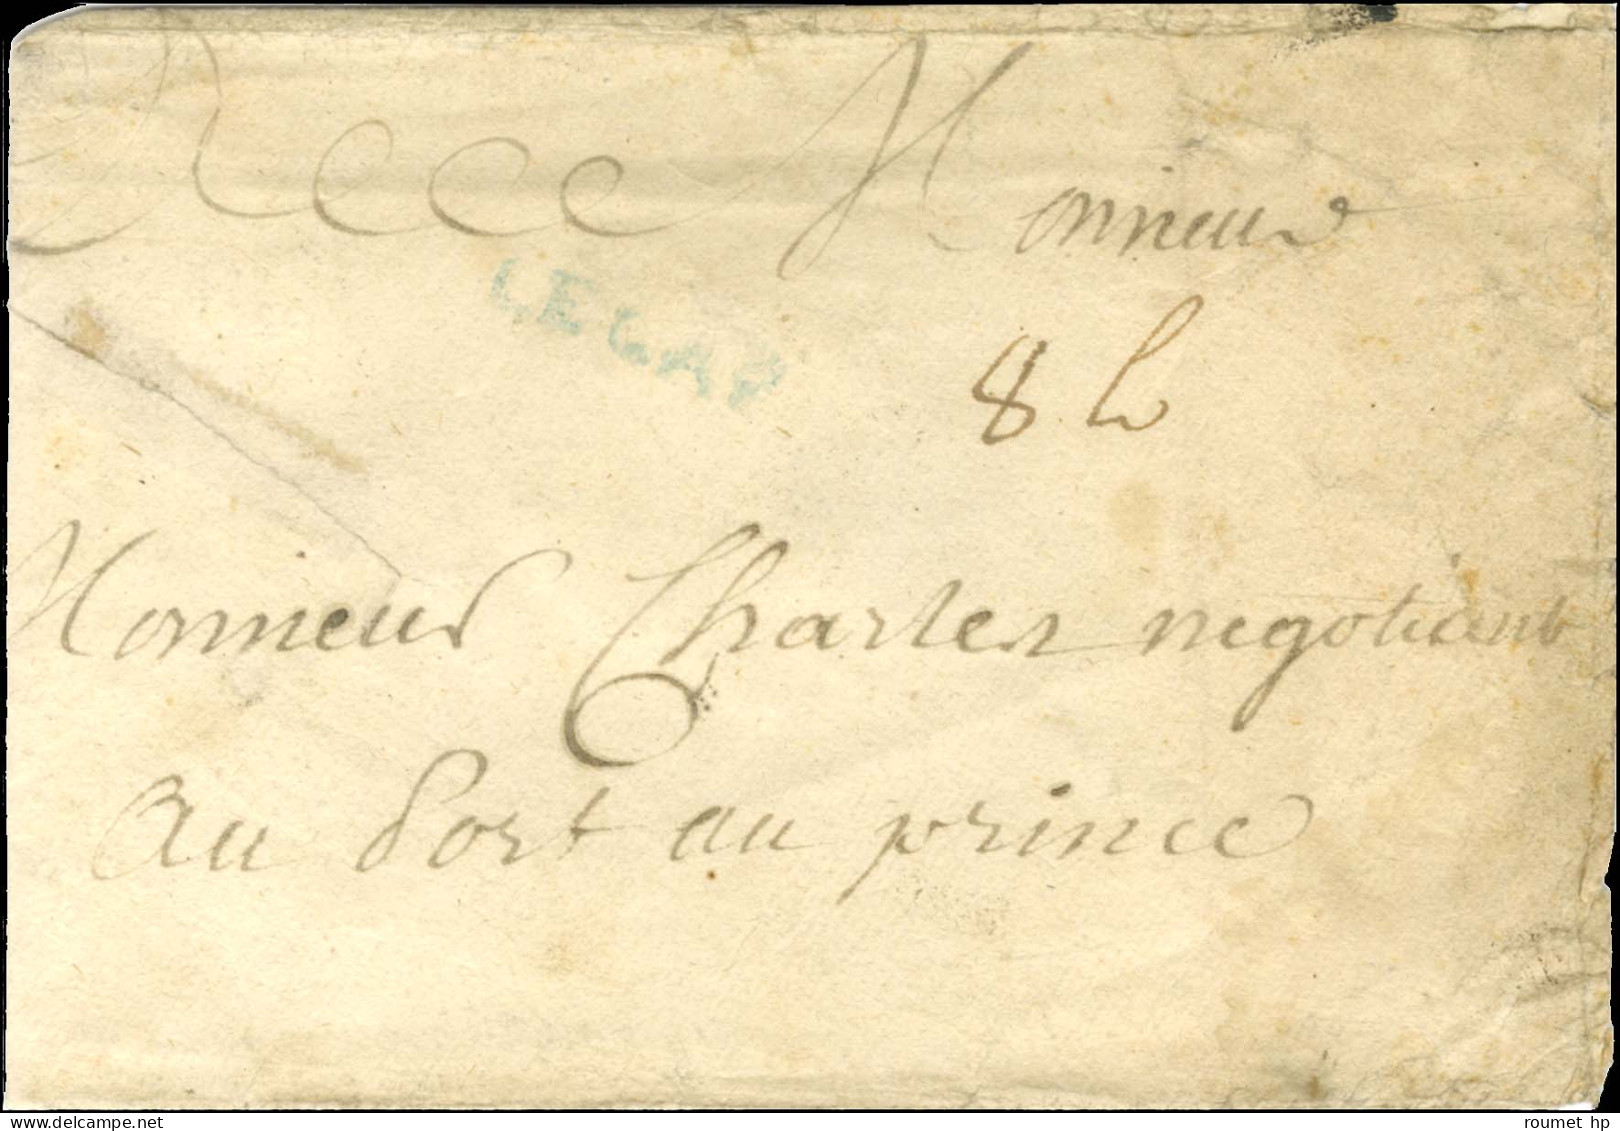 A Monsieur
LE CAP
8 L
Monsieur Charles negotiant
au Port au prince
www.delcampe.net
roumet hp